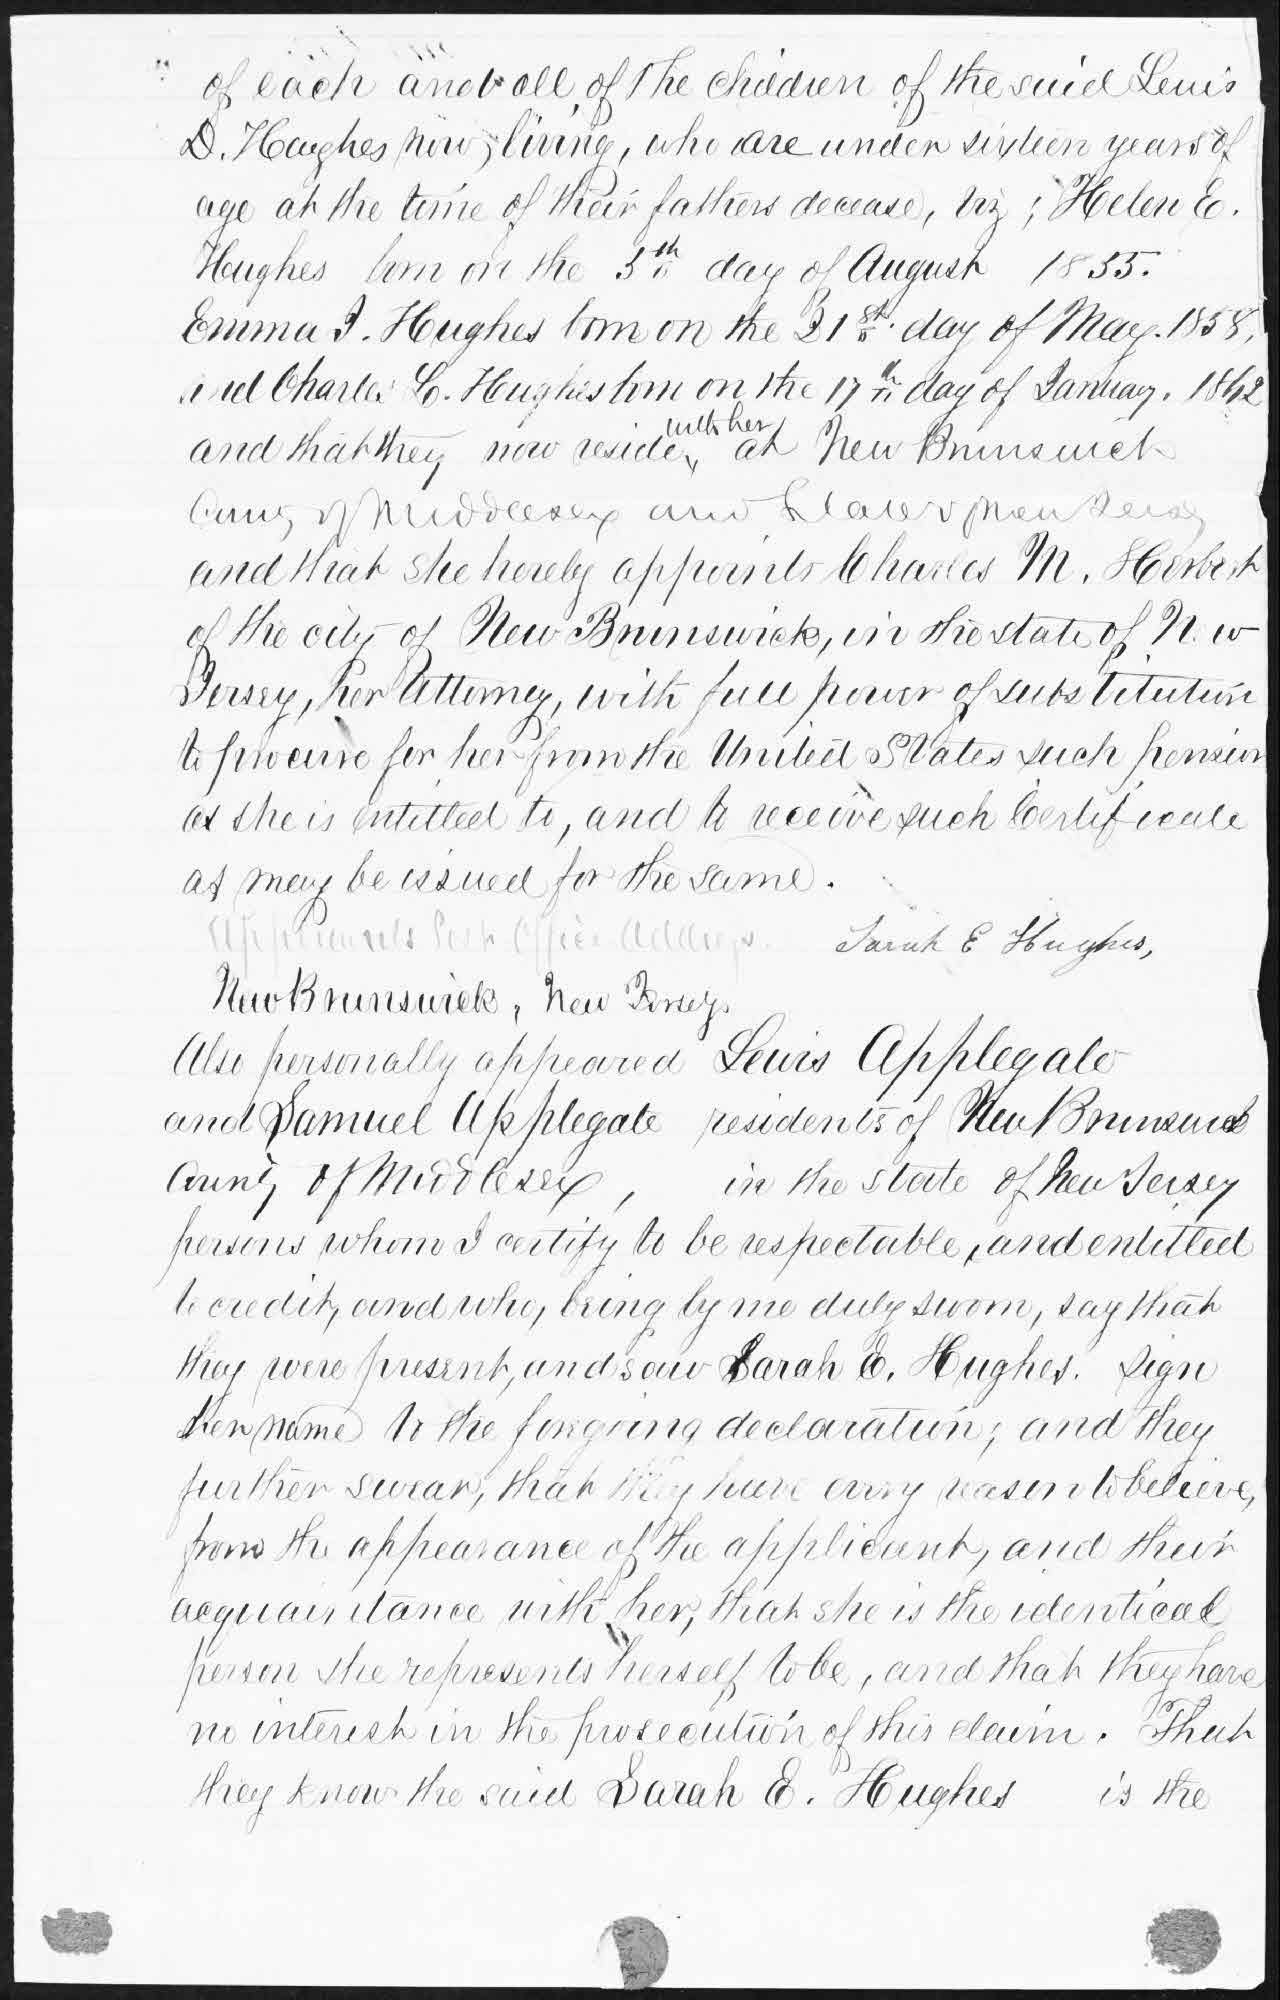 of each and all of the children of the said Lewis
D. Hughes now living, who are under sixteen years of
age at the time of their fathers decease, viz; Helen E.
Hughes born on the 5th day of August 1855.
Emma J. Hughes born on the 31st day of May. 1858,
and Charles L. Hughes born on the 17th day of January. 1862
and that they now reside with her at New Brunswick
County of Middlesex and State of New Jersey
and that she hereby appoints Charles M. Herbert
of the city of New Brunswick, in the state of New
Jersey, her Attorney, with full power of substitution
to procure for her from the United States such pension
as she is entitled to, and to receive such Certificate
as may be issued for the same.
Applicants Post Office Address. Sarah E Hughes,
New Brunswick, New Jersey.
Also personally appeared Lewis Applegate
and Samuel Applegate residents of New Brunswick
County of Middlesex, in the state of New Jersey
persons whom I certify to be respectable, and entitled
to credit, and who, being by me duly sworn, say that
they were present, and saw Sarah E. Hughes. sign
her name to the foregoing declaration; and they
further swear, that they have every reason to believe,
from the appearance of the applicant, and their
acquaintance with her, that she is the identical
person she represents herself to be, and that they have
no interest in the prosecution of this claim. That
they know the said Sarah E. Hughes is the